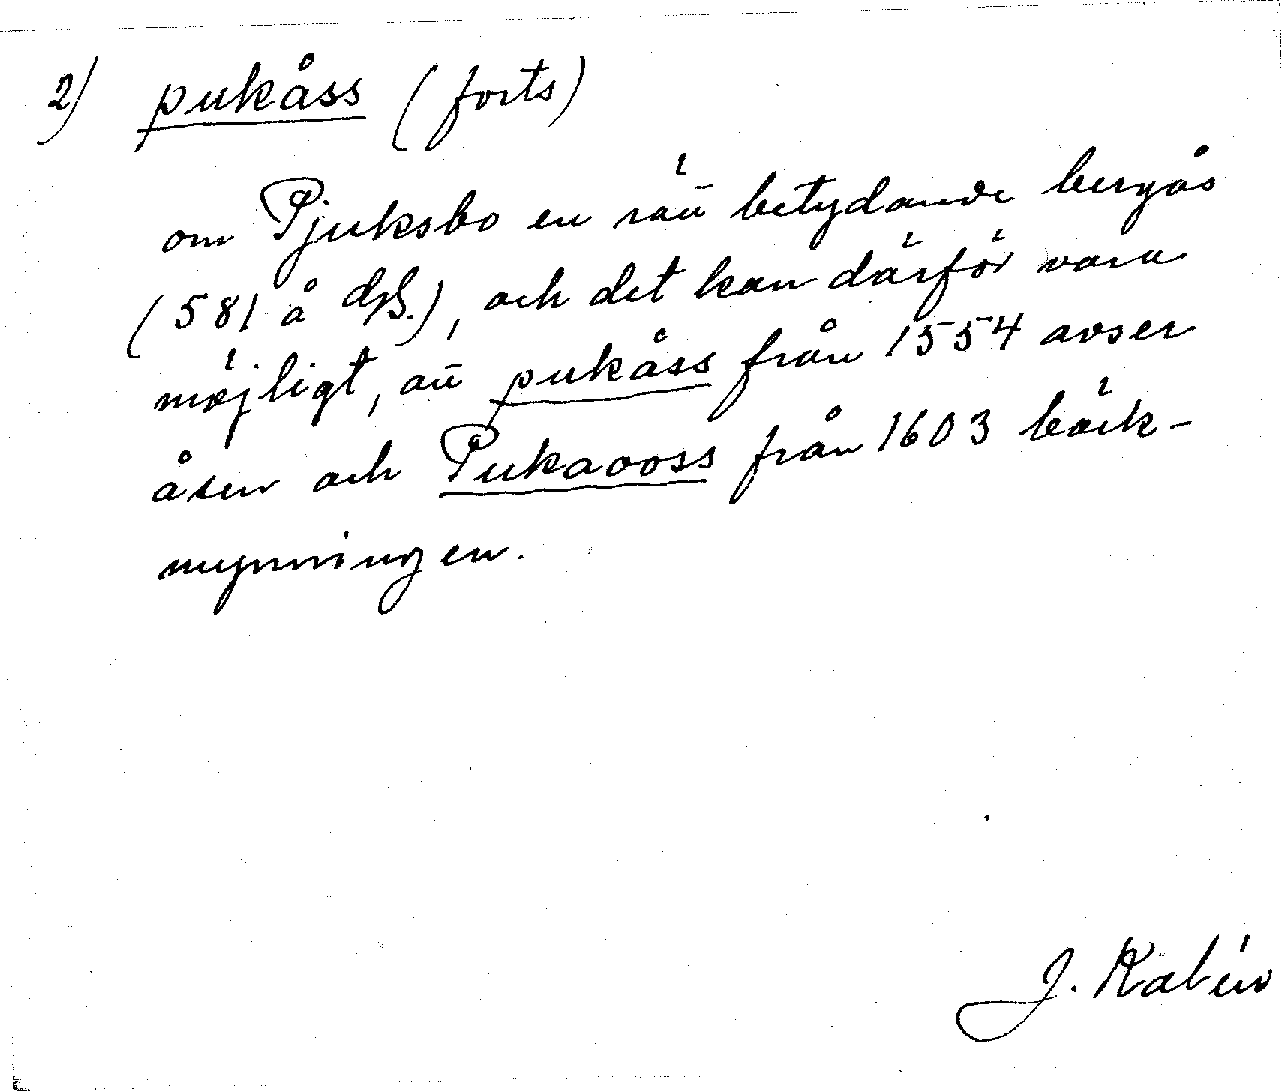 2) pukåss (forts)
om Pjuksbo en rätt betydande bergås
(581 å ), och det kan därför vara
möjligt, att pukåss från 1554 avser
åsen och Pukaooss från 1603 bäck-
mynningen.
J. Kalén